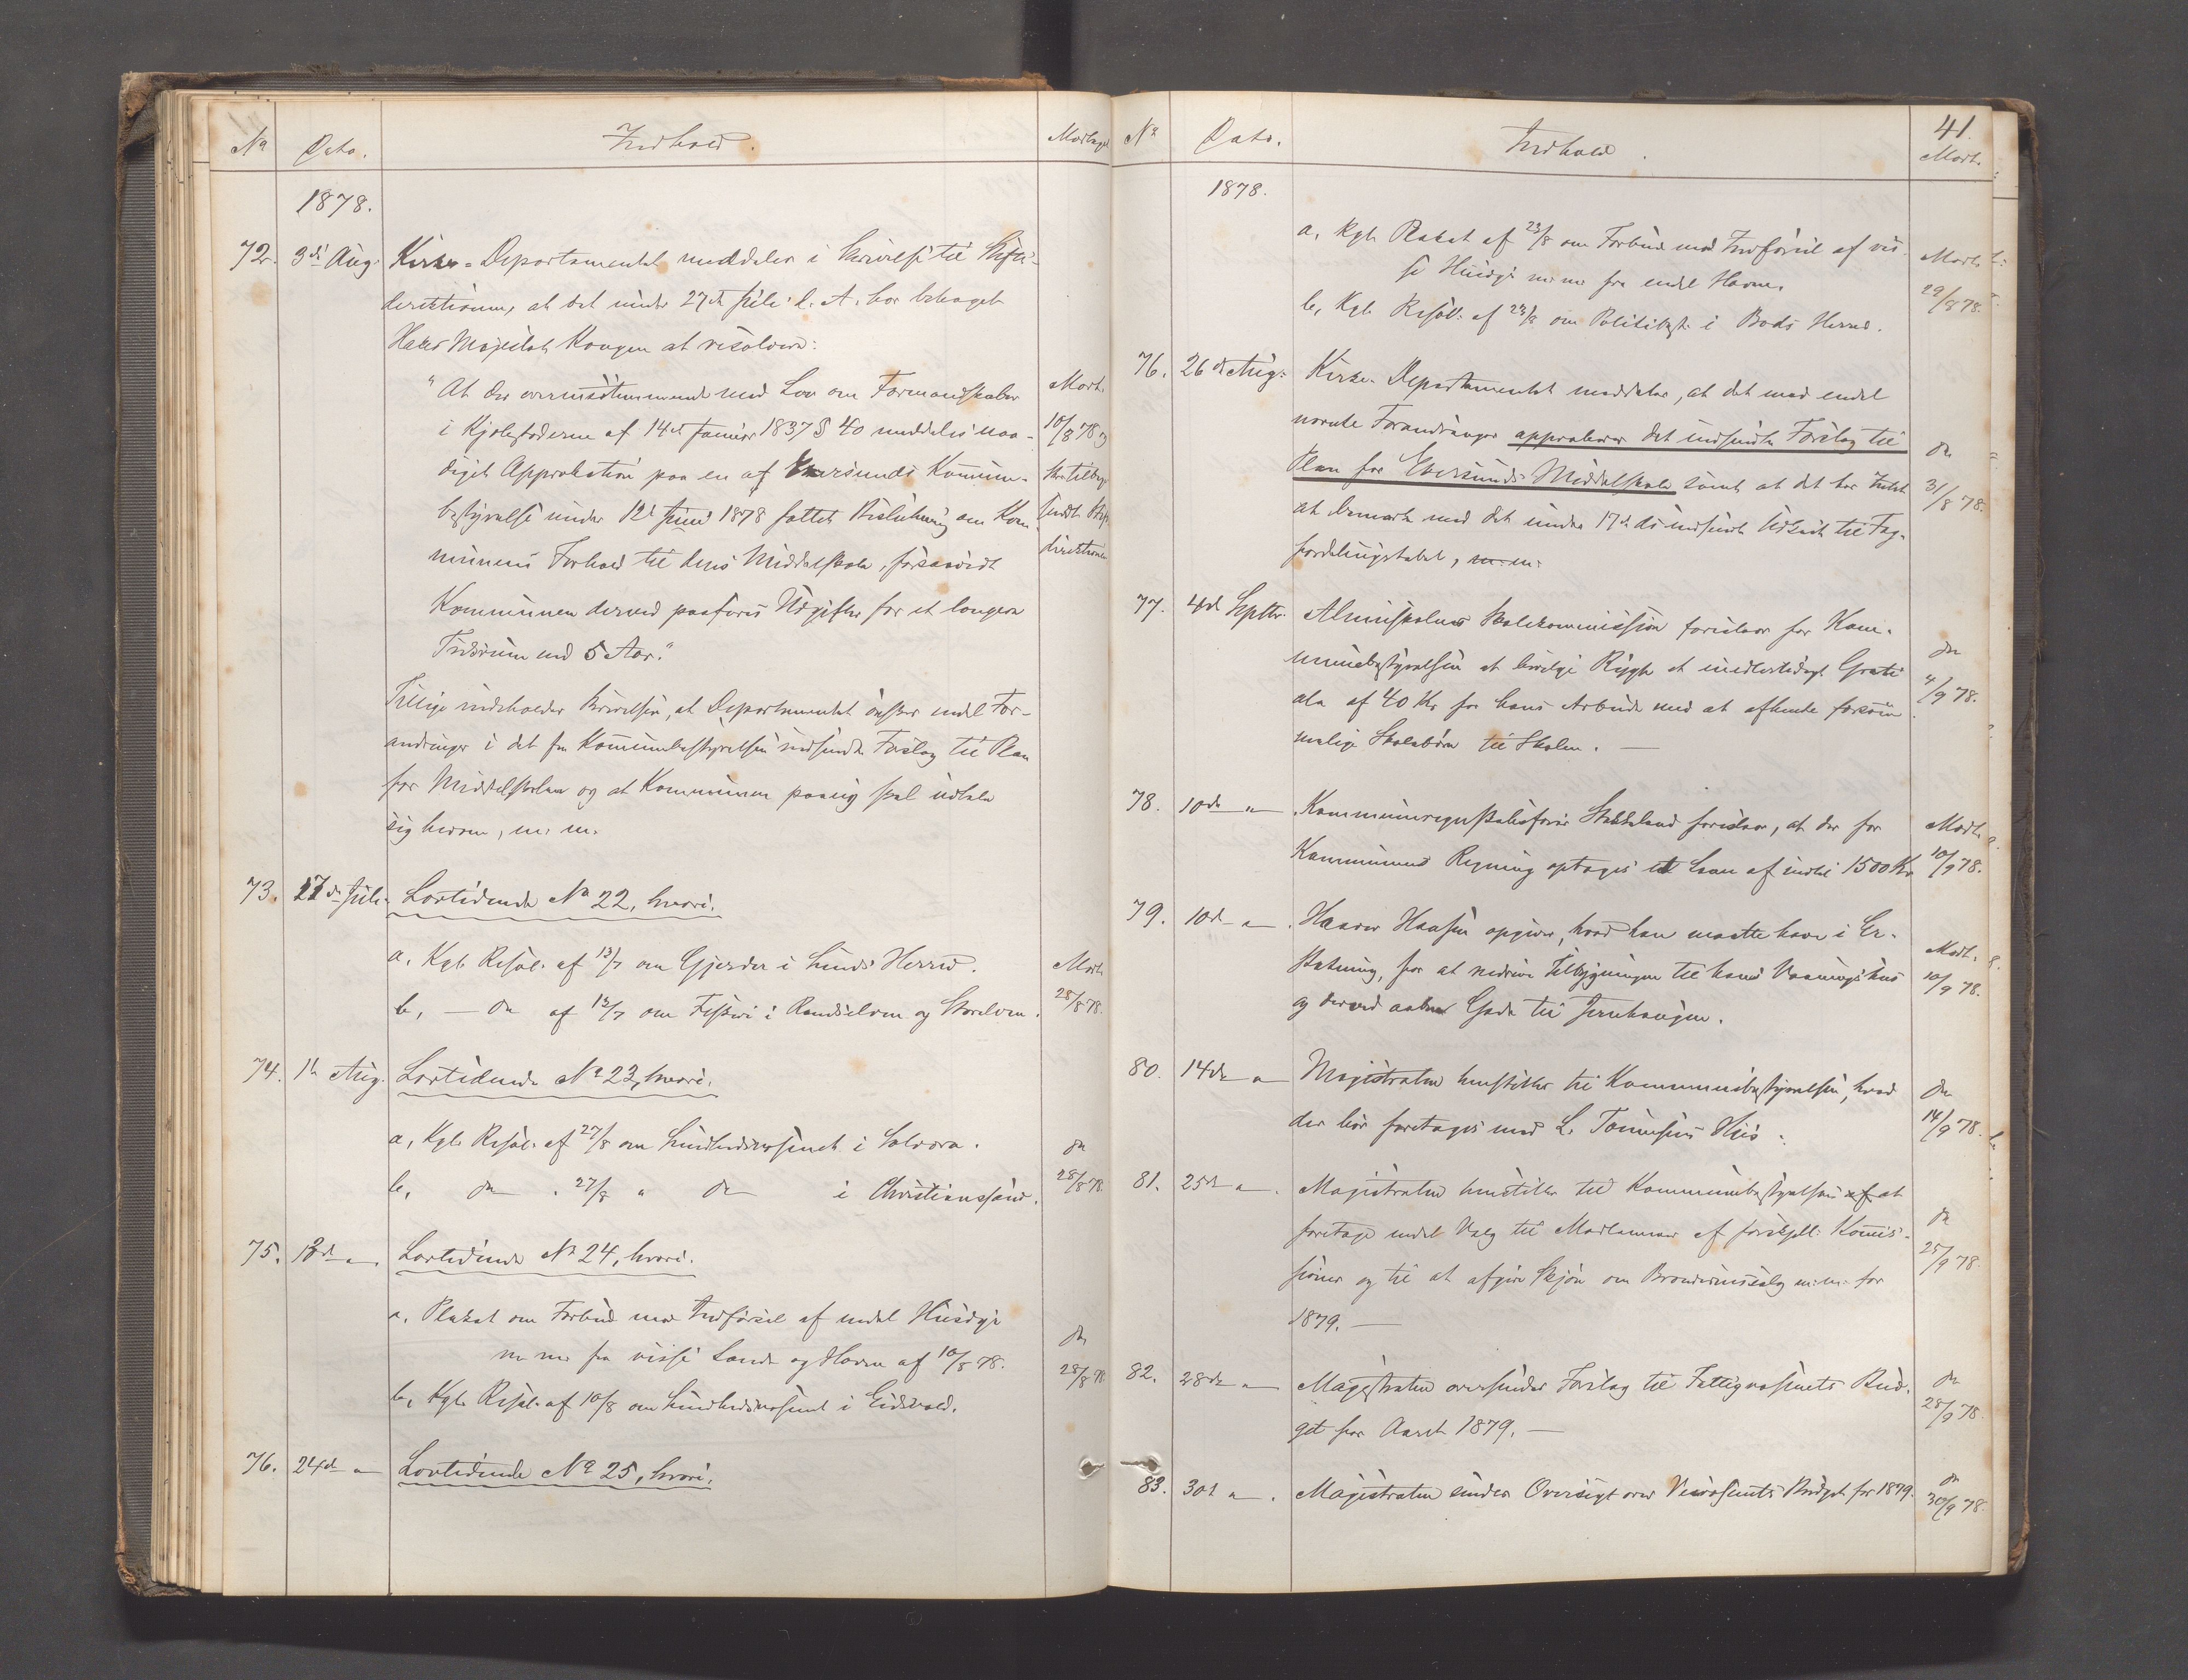 No Dato. Indhold. Modtaget
1878.
72. 3die Aug. Kirke-Departementet meddeler i Skrivelse til Stifts-
direktionen, at det under 27de Juli d. A. har behaget
Hans Majestæt Kongen at resolvere:
"At der overensstemmende med Lov om Formandskaber Modt.
i Kjøbstæderne af 14de Januar 1837 § 40 meddeles naa- 10/8 78 og
digst Approbation paa en af Egersunds Kommune- tilbage
bestyrelse under 12te Juni 1878 fattet Beslutning om Kom- sendt Stifts
munens Forhold til dens Middelskole, forsaavidt direktionen
Kommunen derved paaføres Udgifter for et længere
Tidsrum end 5 Aar."
Tillige indeholder Skrivelsen, at Departementet ønsker endel For-
andringer i det fra Kommunebestyrelsen indsendte Forslag til Plan
for Middelskolen og at Kommunen paany skal udtale
sig herom, m. m.
73. 17de Juli. Lovtidende No 22, hvori:
a. Kgl. Resol. af 13/7 om Gjerder i Lunds Herred. Modt.
b, — do af 13/7 om Fiskeri i Randselven og Storelven. 28/8 78.
74. 1te Aug. Lovtidende No 23, hvori:
a, Kgl. Resol. af 27/8 om Sundhedsvæsenet i Solvorn. do
b, do " 27/8 " do i Christianssand. 28/8 78.
75. 13de " Lovtidende No 24, hvori:
a. Plakat om Forbud mod Indførsel af endel Husdyr do
m m. fra visse Lande og Havne af 10/8 78. 28/8 78
b, Kgl. Resol. af 10/8 om Sundhedsvæsenet i Eidsvold.
76. 24de " Lovtidende No 25, hvori:
41.
No Dato. Indhold. Modt.
1878.
a, Kgl. Plakat af 23/8 om Forbud mod Indførsel af vis- Modt.
se Husdyr m.m. fra endel Havne. 29/8 78.
b, Kgl. Resol. af 23/8 om Politibest. i Bodø Herred.
76. 26de Aug. Kirke-Departementet meddeler, at det med endel
nævnte Forandringer approberer det indsendte Forslag til do
Plan for Egersunds Middelskole samt at det har Intet 31/8 78.
at bemærke med det under 17de ds indsendte Udkast til Fag-
fordelingstabel, m. m.
77. 4de Septbr. Almueskolens Skolekommission foreslaar for Kom- do
munebestyrelsen at bevilge Rygh et midlertidigt Grati- 4/9 78.
ale af 40 Kr for hans Arbeide med at afhente forsøm-
melige Skolebørn til Skolen. —
78. 10de " Kommuneregnskabsfører Stokkeland foreslaar, at der for Modt.
Kommunens Regning optages et Laan af indtil 1500 Kr 10/9 78.
79. 10de " Haaver Hansen opgiver, hvad han maatte have i Er- Modt.
statning, for at nedrive Tilbygningen til hans Vaaningshus 10/9 78.
og derved aabne Gade til Jernhaugen.
80. 14de " Magistraten henstiller til Kommunebestyrelsen, hvad do
der bør foretages med L. Tønnesens Hus. 14/9 78.
81. 25de " Magistraten henstiller til Kommunebestyrelsen af at do
foretage endel Valg til Medlemmer af forskjell. Kommis- 25/9 78.
sioner og til at afgive Skjøn om Brændevinssalg m.m. for
1879. —
82. 28de " Magistraten oversender Forslag til Fattigvæsenets Bud- do
get for Aaret 1879. — 28/9 78.
83. 30te " Magistraten sender Oversigt over Veivæsenets Budget for 1879. do
30/9 78.